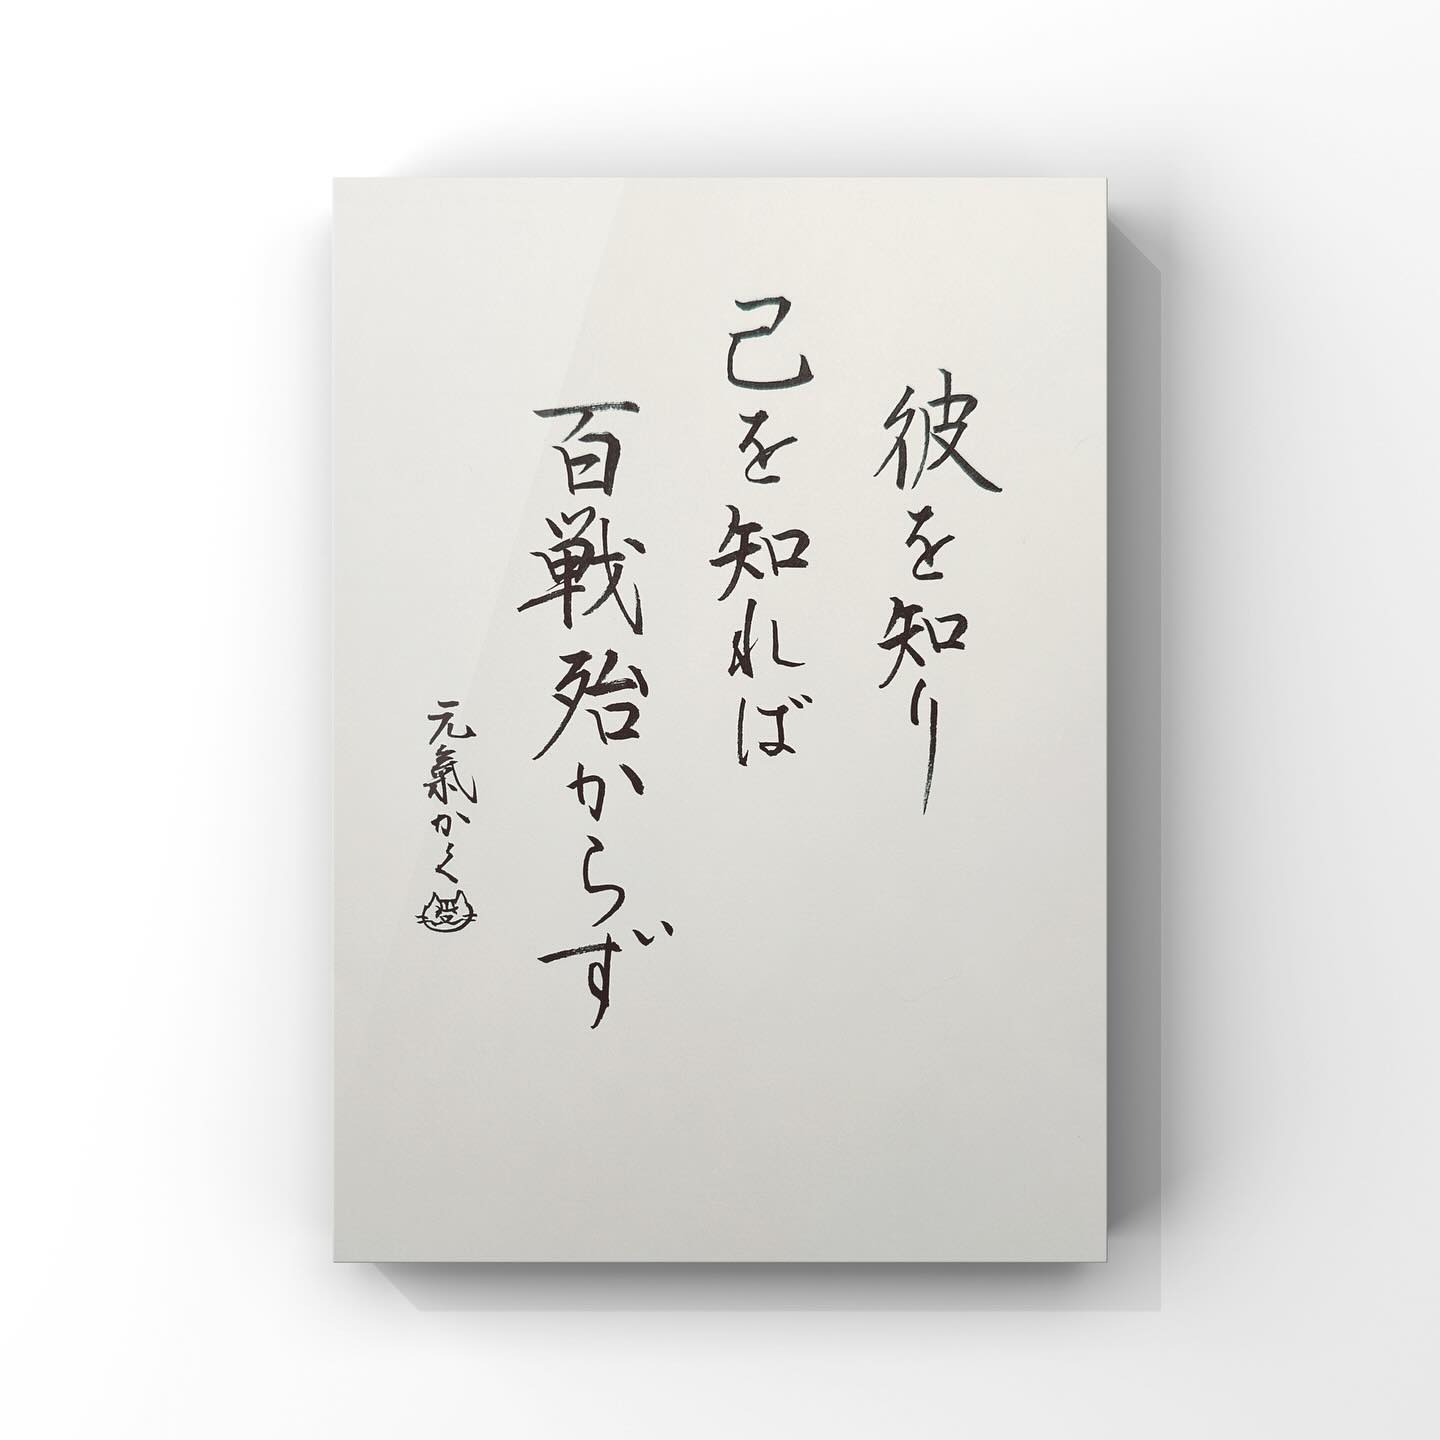 彼を知り
己を知れば
百戦殆からず
元氣かく